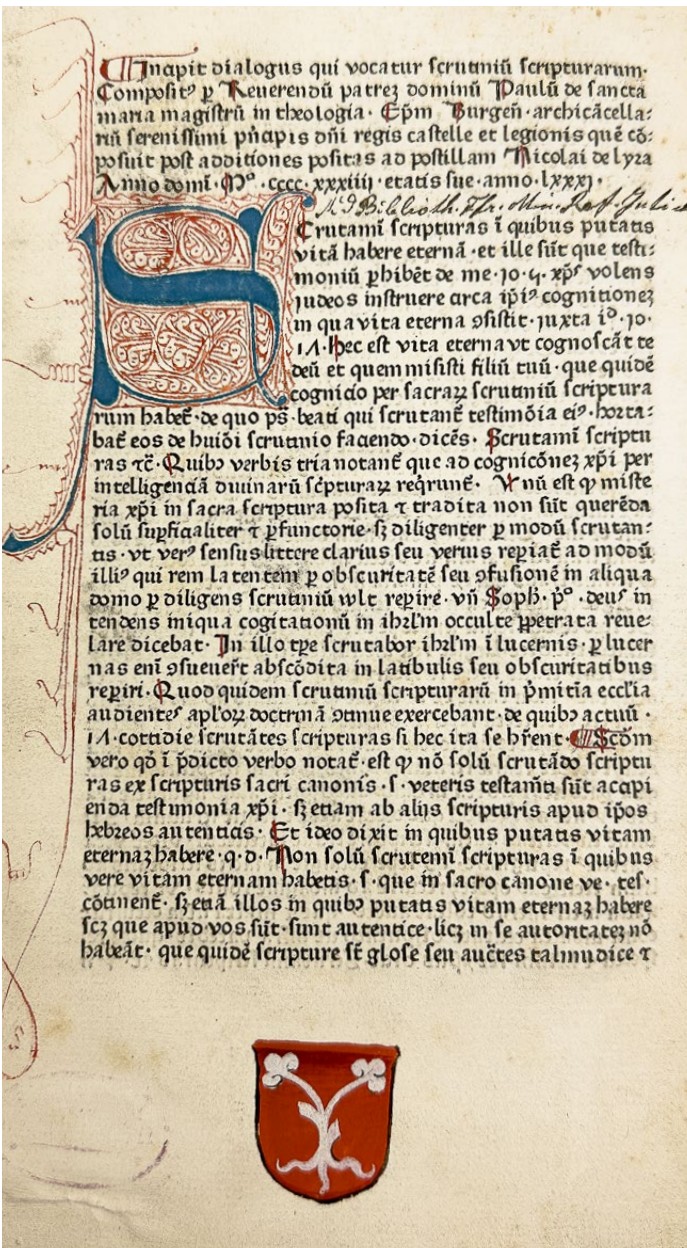 Incipit dialogus qui vocatur scrutiniū scripturarum·
Composit⁹ ꝑ Reuerendū patreꝫ dominū Paulū de sancta
maria magistrū in theologia· Ep̄m Burgen̄·archicācella⸗
riū serenissimi pn̄cipis dn̄i regis castelle et legionis quē cō⸗
posuit post additiones positas ad postillam Nicolai de lyra
Anno domī·M°·cccc·xxxiiij·etatis sue·anno·lxxxj·
Biblioth. Ffr. Min.
SCrutamī scripturas ī quibus putatis
vitā habere eternā·et ille sūt que testi⸗
moniū ꝑhibēt de me·io·5·xp̄s volens
iudeos instruere circa ip̄i⁹ cognitioneꝫ
in qua vita eterna ꝯsistit·iuxta iᵈ·io·
17·Hec est vita eterna vt cognoscāt te
deū et quem misisti filiū tuū·que quidē
cognicio per sacraꝝ scrutiniū scriptura
rum habet̄·de quo ps̄·beati qui scrutant̄ testimōia ei⁹·horta⸗
bat̄ eos de huiōi scrutinio faciendo·dicēs·Scrutamī scriptu
ras ⁊c̄·Quibꝫ verbis tria notant̄ que ad cognicōneꝫ xp̄i per
intelligenciā diuinarū sc̄pturaꝝ reqͥrunt̄· Vnū est ꝙ miste
ria xp̄i in sacra scriptura posita ⁊ tradita non sūt querēda
solū suꝑficialiter ⁊ ꝑfunctorie·sꝫ diligenter ꝑ modū scrutan⸗
tis·vt ver⁹ sensus littere clarius seu verius reꝑiat̄ ad modū
illi⁹ qui rem latentem ꝑ obscuritatē seu ꝯfusionē in aliqua
domo ꝑ diligens scrutiniū wlt reꝑire·vn̄ Soph·pᵒ·deus in
tendens iniqua cogitationū in ihrl'm occulte ꝑpetrata reue⸗
lare dicebat·In illo tꝑe scrutabor ihrl'm ī lucernis·ꝑ lucer
nas enī ꝯsueuer̄t abscōdita in latibulis seu obscuritatibus
reꝑiri·Quod quidem scrutiniū scripturarū in pͥmitia eccl'ia
audientes apl'oꝝ doctrinā ꝯtinue exercebant·de quibꝫ actuū·
17·cottidie scrutātes scripturas si hec ita se hr̄ent·Scd̄m
vero qd̄ ī p̄dicto verbo notat̄·est ꝙ nō solū scrutādo scriptu
ras ex scripturis sacri canonis·s·veteris testam̄ti sūt accipi
enda testimonia xp̄i·sꝫ etiam ab alijs scripturis apud ip̄os
hebreos autenticis·Et ideo dixit in quibus putatis vitam
eternaꝫ habere·q·d·Non solū scrutemī scripturas ī quibus
vere vitam eternam habetis·s·que in sacro canone ve·tes·
cōtinent̄·sꝫ etiā illos in quibꝫ putatis vitam eternaꝫ habere
scꝫ que apud vos sūt·sunt autentice·licꝫ in se autoritateꝫ nō
habeāt·que quidē scripture st̄ glose seu auct̄es talmudice ⁊